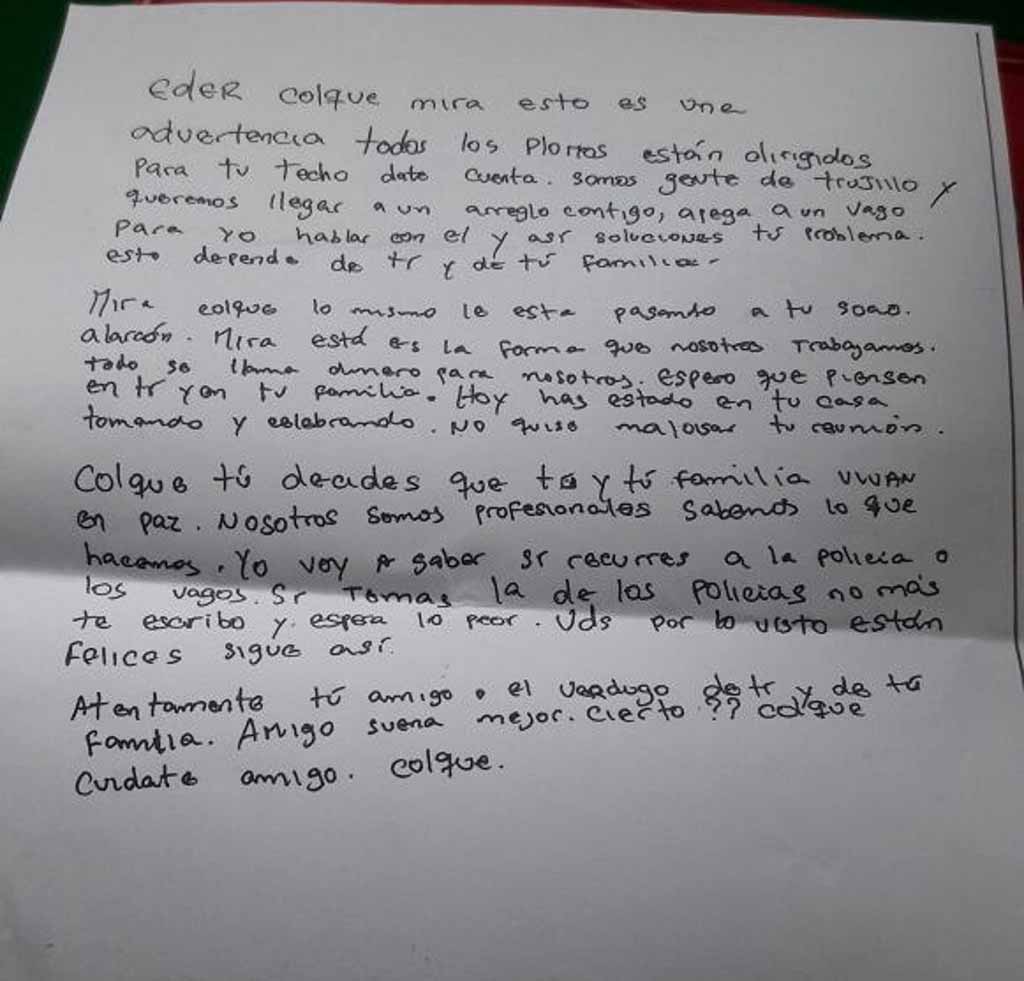 EDER Colque mira esto es una
advertencia todos los Plomos están dirigidos
Para tu Techo date cuenta. somos gente de trujillo y
queremos llegar a un arreglo contigo, apega a un vago
Para yo hablar con el y asi soluciones tú problema.
esto depende de ti y de tú familia-
Mira colque lo mismo le esta pasando a tu socio.
alarcón. Mira está es la forma que nosotros Trabajamos.
todo se llama dinero para nosotros. espero que piensen
en ti y en tu familia. Hoy has estado en tu casa
tomando y celebrando. NO quise malograr tu reunión.
Colque tú decides que tú y tú familia VIVAN
en paz. Nosotros somos profesionales sabemos lo que
hacemos. Yo voy A saber si recurres a la policia o
los vagos. Si Tomas la de los policias no más
te escribo y espera lo peor. Uds por lo visto están
felices sigue así.
Atentamente tú amigo o el verdugo de ti y de tú
familia. Amigo suena mejor. cierto ?? colque
Cuidate amigo. colque.